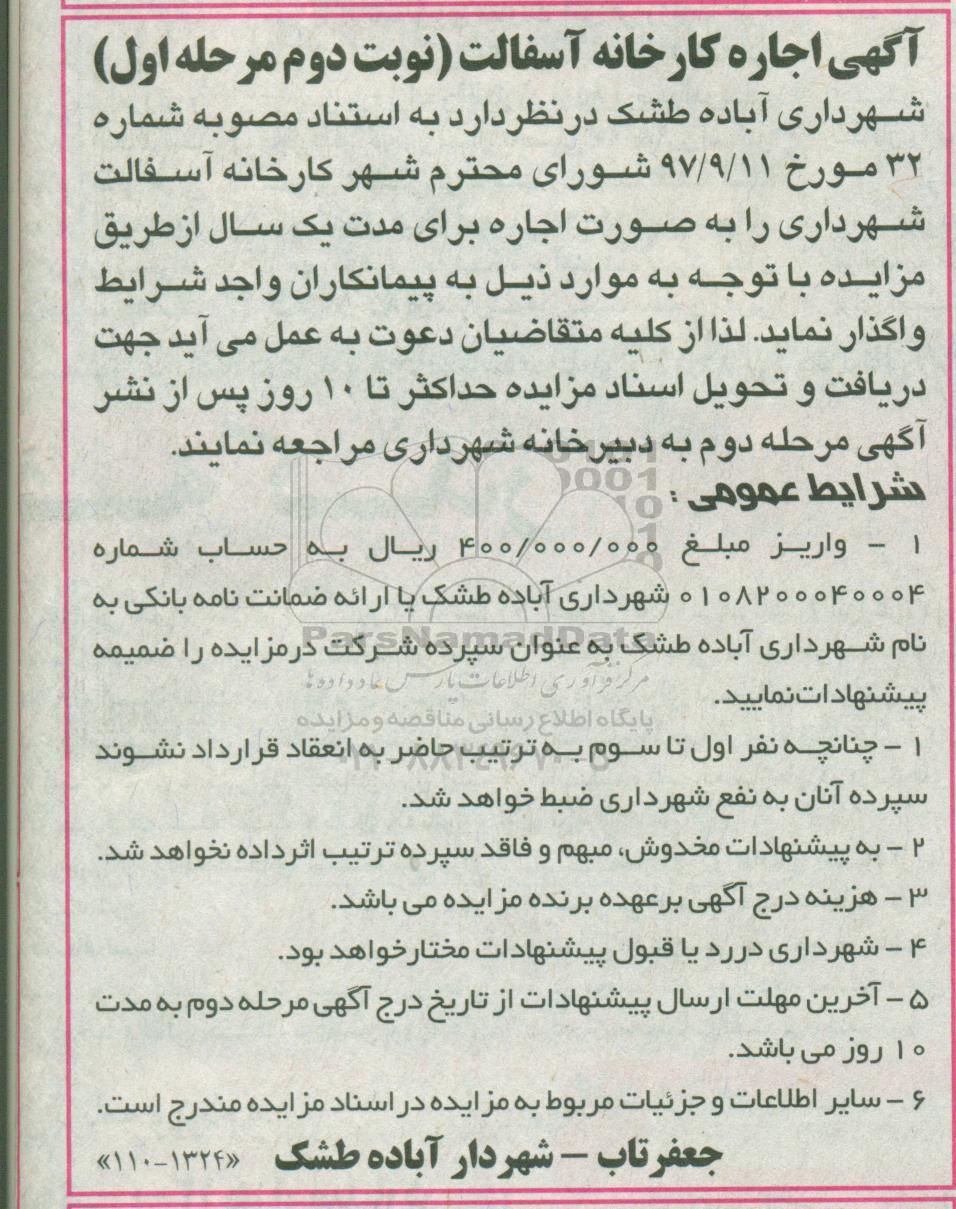 آگهی اجاره کارخانه آسفالت (نوبت دوم مرحله اول)
شهرداری آباده طشک درنظر دارد به استناد مصوبه شماره
۳۲ مورخ ۹۷/۹/۱۱ شورای محترم شهر کارخانه آسفالت
شهرداری را به صورت اجاره برای مدت یک سال ازطریق
مزایده با توجه به موارد ذیل به پیمانکاران واجد شرایط
واگذار نماید. لذا از کلیه متقاضیان دعوت به عمل می آید جهت
دریافت و تحویل اسناد مزایده حداکثر تا ۱۰ روز پس از نشر
آگهی مرحله دوم به دبیرخانه شهرداری مراجعه نمایند.
شرایط عمومی :
۱ - واریز مبلغ ۴۰۰/۰۰۰/۰۰۰ ریال به حساب شماره
۰۱۰۸۲۰۰۰۴۰۰۰۴ شهرداری آباده طشک یا ارائه ضمانت نامه بانکی به
نام شهرداری آباده طشک به عنوان سپرده شرکت درمزایده را ضمیمه
پیشنهادات نمایید.
۱ - چنانچه نفر اول تا سوم به ترتیب حاضر به انعقاد قرارداد نشوند
سپرده آنان به نفع شهرداری ضبط خواهد شد.
۲ - به پیشنهادات مخدوش، مبهم و فاقد سپرده ترتیب اثرداده نخواهد شد.
۳ - هزینه درج آگهی برعهده برنده مزایده می باشد.
۴ - شهرداری دررد یا قبول پیشنهادات مختارخواهد بود.
۵ - آخرین مهلت ارسال پیشنهادات از تاریخ درج آگهی مرحله دوم به مدت
۱۰ روز می باشد.
۶ - سایر اطلاعات و جزئیات مربوط به مزایده در اسناد مزایده مندرج است.
جعفرتاب – شهردار آباده طشک «۱۱۰-۱۳۲۴»
ParsNamadData
مرکز فرآوری اطلاعات پارس نماد داده ها
پایگاه اطلاع رسانی مناقصه و مزایده